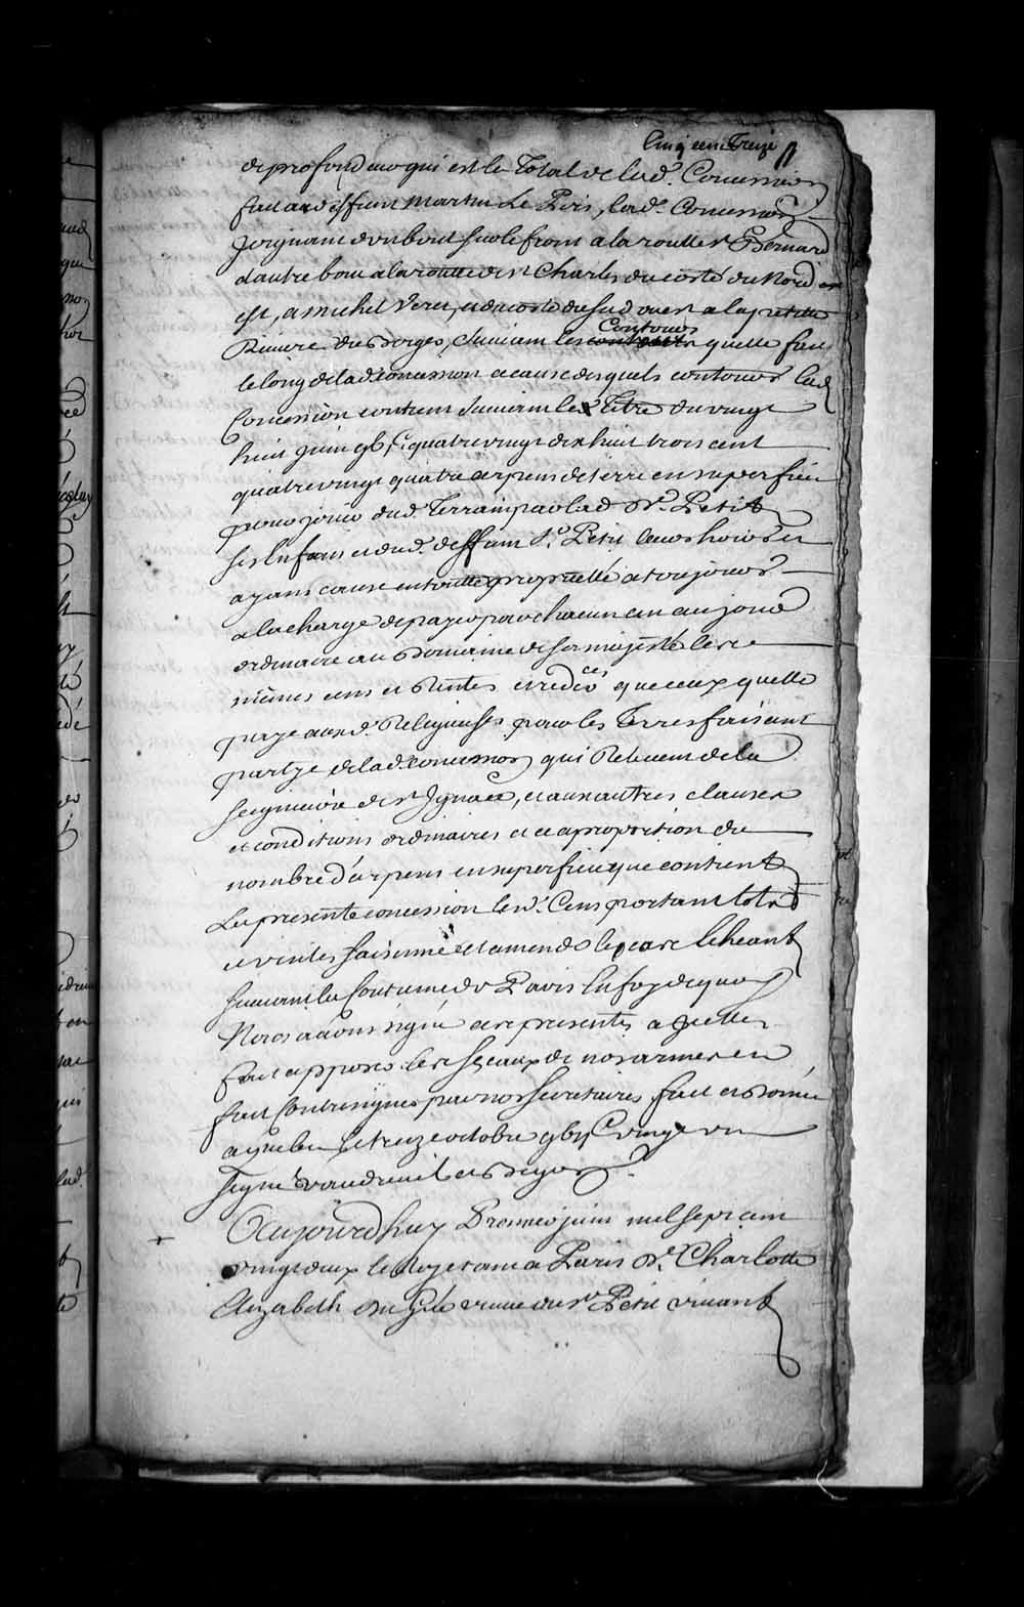 Cinq cent Treize
de profondeur qui est le Total de lad. Concession
fait aud deffunt Martin Le Pirs, lad. Concession
joignant d'un bout sur le front a la routte St Bernard
d'autre bout a la routte de St Charles du costé du Nord
est, a michel Verret, et du costé du sud ouest a la petitte
Riviere des Borges, suivant les Contours quelle fait
le long de lad. concession a cause desquels contours lad
Concession contient suivant le Titre du vingt
huit juin gbi C quatre vingt dix huit trois cent
quatre vingt quatre arpens de terre en superficie
pour jouir dud. Terrain par lad De. Petit
ses Enfans et dud. deffunt Sr. Petit leurs hoirs et
ayans cause en toutte propriettée a toujours
a la charge de payer par chacun an au jour
ordinaire au Domaine de sa majesté les
mêmes cens et Rentes et redces que ceux quelle
paye auxd. Religieuses pour les Terres faisant
partye de lad. concession qui Relevent de la
seigneurie de St Ignace, et aux autres clauses
et conditions ordinaires et ce a proportion du
nombre d'arpens en superficie que contient
La presente concession lesd. Cens portant lots
et ventes saisinne et amende le cas Echeant
suivant la Coutume de Paris En foy de quoy
Nous avons signé ces presentes a ycelles
fait apposer les sceaux de nos armes et
fait Contresigner par nos secretaires fait et donné
a quebec le treize octobre gbii C vingt un
signé vaudreuil et Begon
Aujourdhuy Premier juin mil sept cent
vingt deux le Roy etant a Paris De. Charlotte
Elizabeth veuve du Sr. Petit vivant